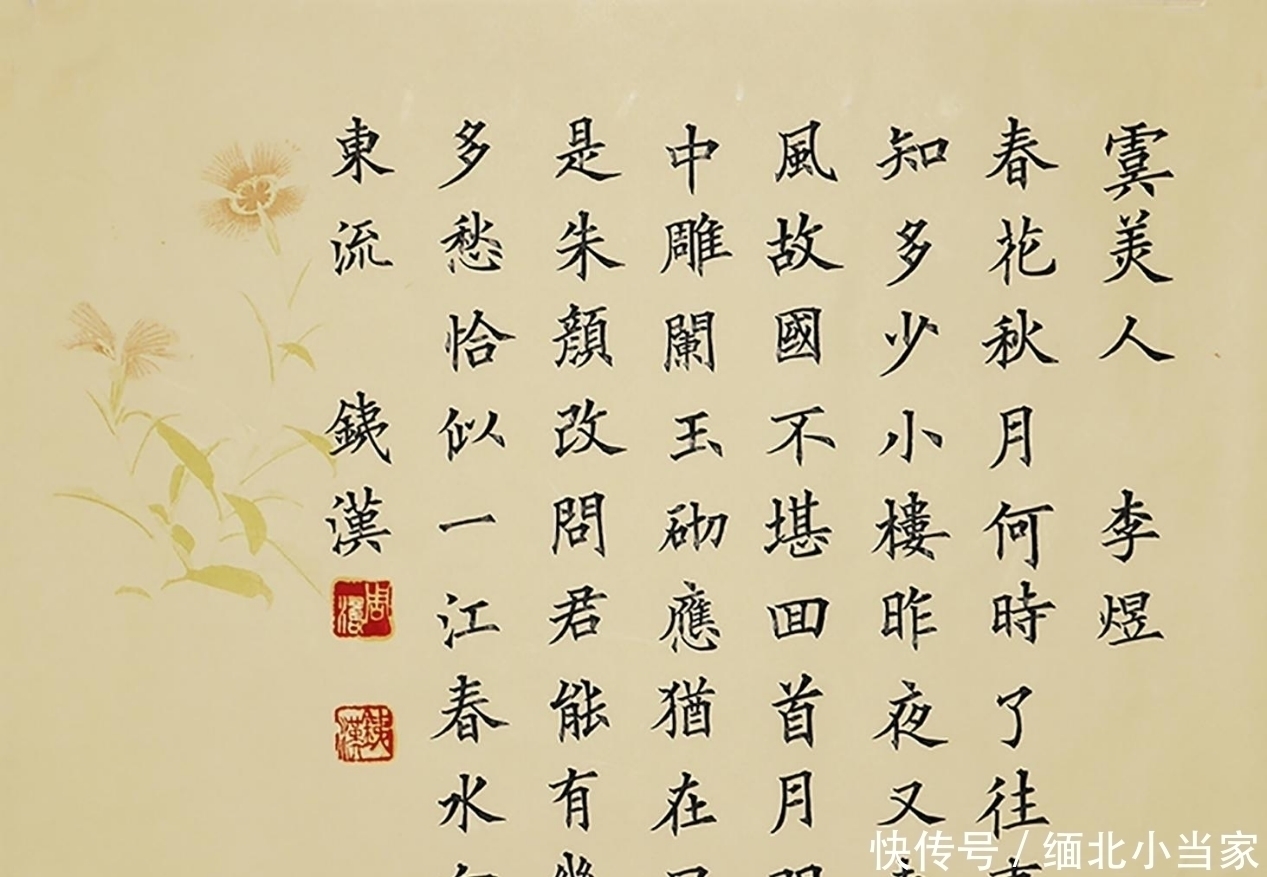 虞美人 李煜
春花秋月何時了往
知多少小樓昨夜又
風故國不堪回首月
中雕闌玉砌應猶在
是朱顏改問君能有
多愁恰似一江春水
東流 銕漢
周
銕漢
快传号 / 缅北小当家